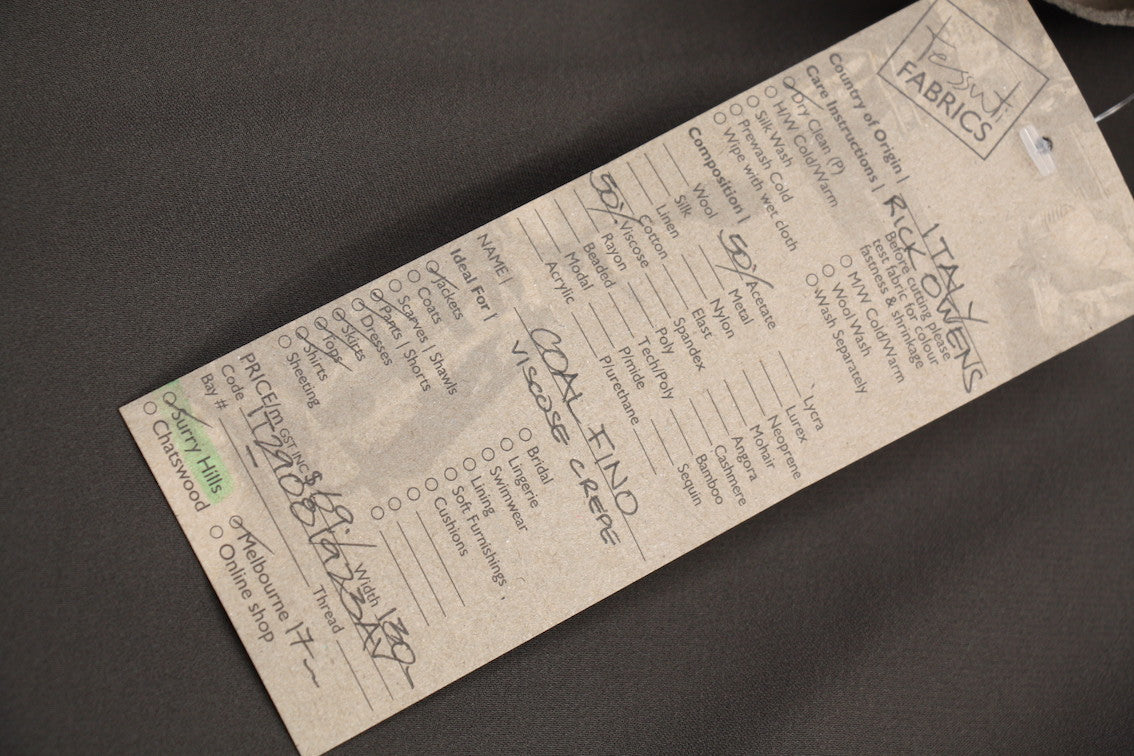 Tessuti
FABRICS
Country of Origin | ITALY
Care Instructions | RICK OWENS
Dry Clean (P)
H/W Cold/Warm
Silk Wash
Prewash Cold
Wipe with wet cloth
Before cutting please
test fabric for colour
fastness & shrinkage
M/W Cold/Warm
Wool Wash
Wash Separately
Composition |
Wool
Silk
Linen
Cotton
50% Viscose
Rayon
Beaded
Modal
Acrylic
50% Acetate
Metal
Nylon
Elast
Spandex
Poly
Tech/Poly
P/mide
P/urethane
Lycra
Lurex
Neoprene
Mohair
Angora
Cashmere
Bamboo
Sequin
NAME | COAL FINO
VISCOSE CREPE
Ideal For |
Jackets
Coats
Scarves | Shawls
Pants | Shorts
Dresses
Skirts
Tops
Shirts
Sheeting
Bridal
Lingerie
Swimwear
Lining
Soft Furnishings
Cushions
PRICE/m GST INC $69/ Width 139~
Code
Bay # Thread
Surry Hills
Chatswood
Melbourne 17~
Online shop